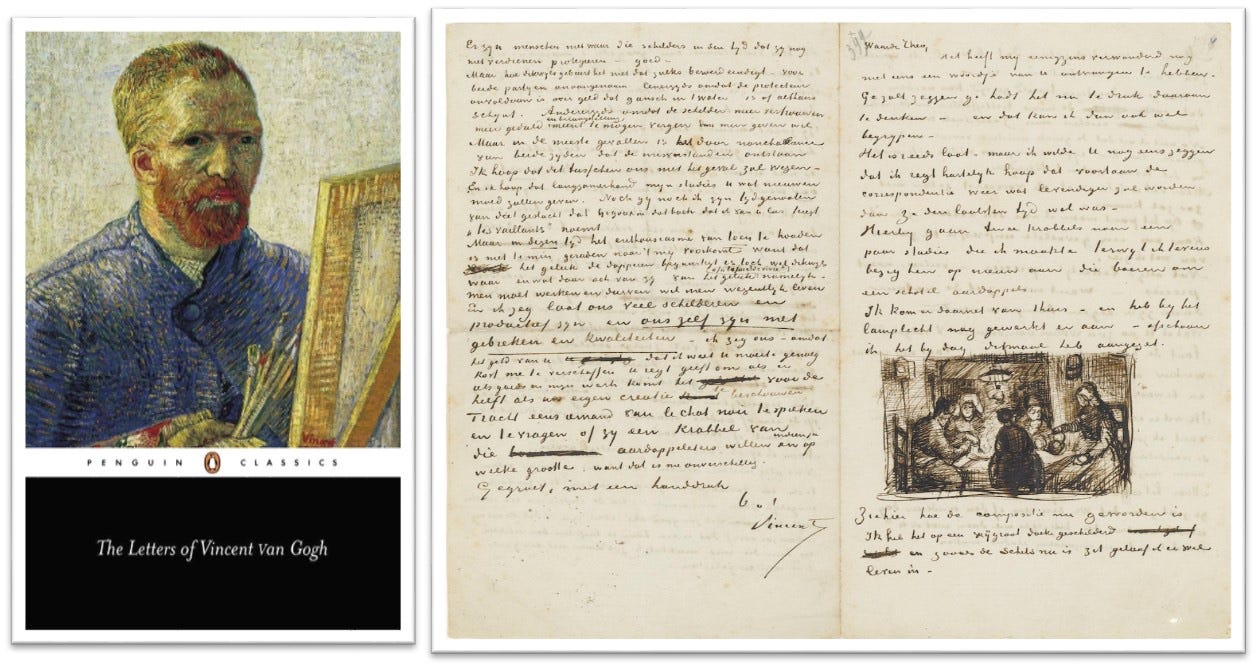 PENGUIN CLASSICS
The Letters of Vincent van Gogh
Er zyn menschen niet waar die schilders in den tyd dat zy nog
niet verdienen protegeren – goed –
Maar hoe dikwyls gebeurt het niet dat zulks beroerd eindigt – voor
beide partyen onaangenaam eenerzyds omdat de protecteur
onvoldaan is over geld dat gansch in t water is of althans
schynt. Anderzyds omdat de schilder meer vertrouwen
meer geduld meent te mogen vergen dan men geven wil
Maar in de meeste gevallen is het door nonchalance
van beide zyden dat de misverstanden ontstaan
Ik hoop dat dit tusschen ons niet het geval zal wezen –
En ik hoop dat langzamerhand myn studies u wat nieuwen
moed zullen geven. Noch gy noch ik zyn tydgenooten
van dat geslacht dat Gigoux in dat boek dat ik van u las
"les vaillants" noemt
Maar in dezen tyd het enthousiasme van toen te houden
is niet te min geraden naar t my voorkomt want dat
het geluk de dapperen begunstigt is toch wel dikwyls
waar en wat daar ook van zy van het geluk namelyk –
men moet werken en durven wil men wezentlyk leven
En ik zeg laat ons veel schilderen en
productief zyn, en ons zelf zyn met
gebreken en kwaliteiten – ik zeg ons – omdat
het geld van u dat ik weet u moeite genoeg
kost me te verschaffen u regt geeft om als er
als goeds in myn werk komt het voor de
helft als uw eigen creatie te beschouwen
Tracht eens iemand van le chat noir te spreken
en te vragen of zy een krabbel van
die aardappeleters willen en op
welke grootte want dat is me onverschillig.
Gegroet, met een handdruk
b. à t.
Vincent
Waarde Theo,
Het heeft my eenigzins verwonderd nog
niet eens een woordje van u ontvangen te hebben.
Ge zult zeggen ge hadt het nu te druk daaraan
te denken – en dat kan ik dan ook wel
begrypen –
Het is reeds laat – maar ik wilde u nog eens zeggen
dat ik regt hartelyk hoop dat voortaan de
correspondentie weer wat levendiger zal worden
dan ze den laatsten tyd wel was –
Hierby gaan twee krabbels naar een
paar studies die ik maakte terwyl ik tevens
bezig ben op nieuw aan die boeren om
een schotel aardappels.
Ik kom er daarnet van thuis – en heb by het
lamplicht nog gewerkt er aan – ofschoon
ik het by dag ditmaal heb aangezet.
Ziehier hoe de compositie nu geworden is
Ik heb het op een vry groot doek geschilderd
en zooals de schets nu is zit geloof ik er wel
leven in –